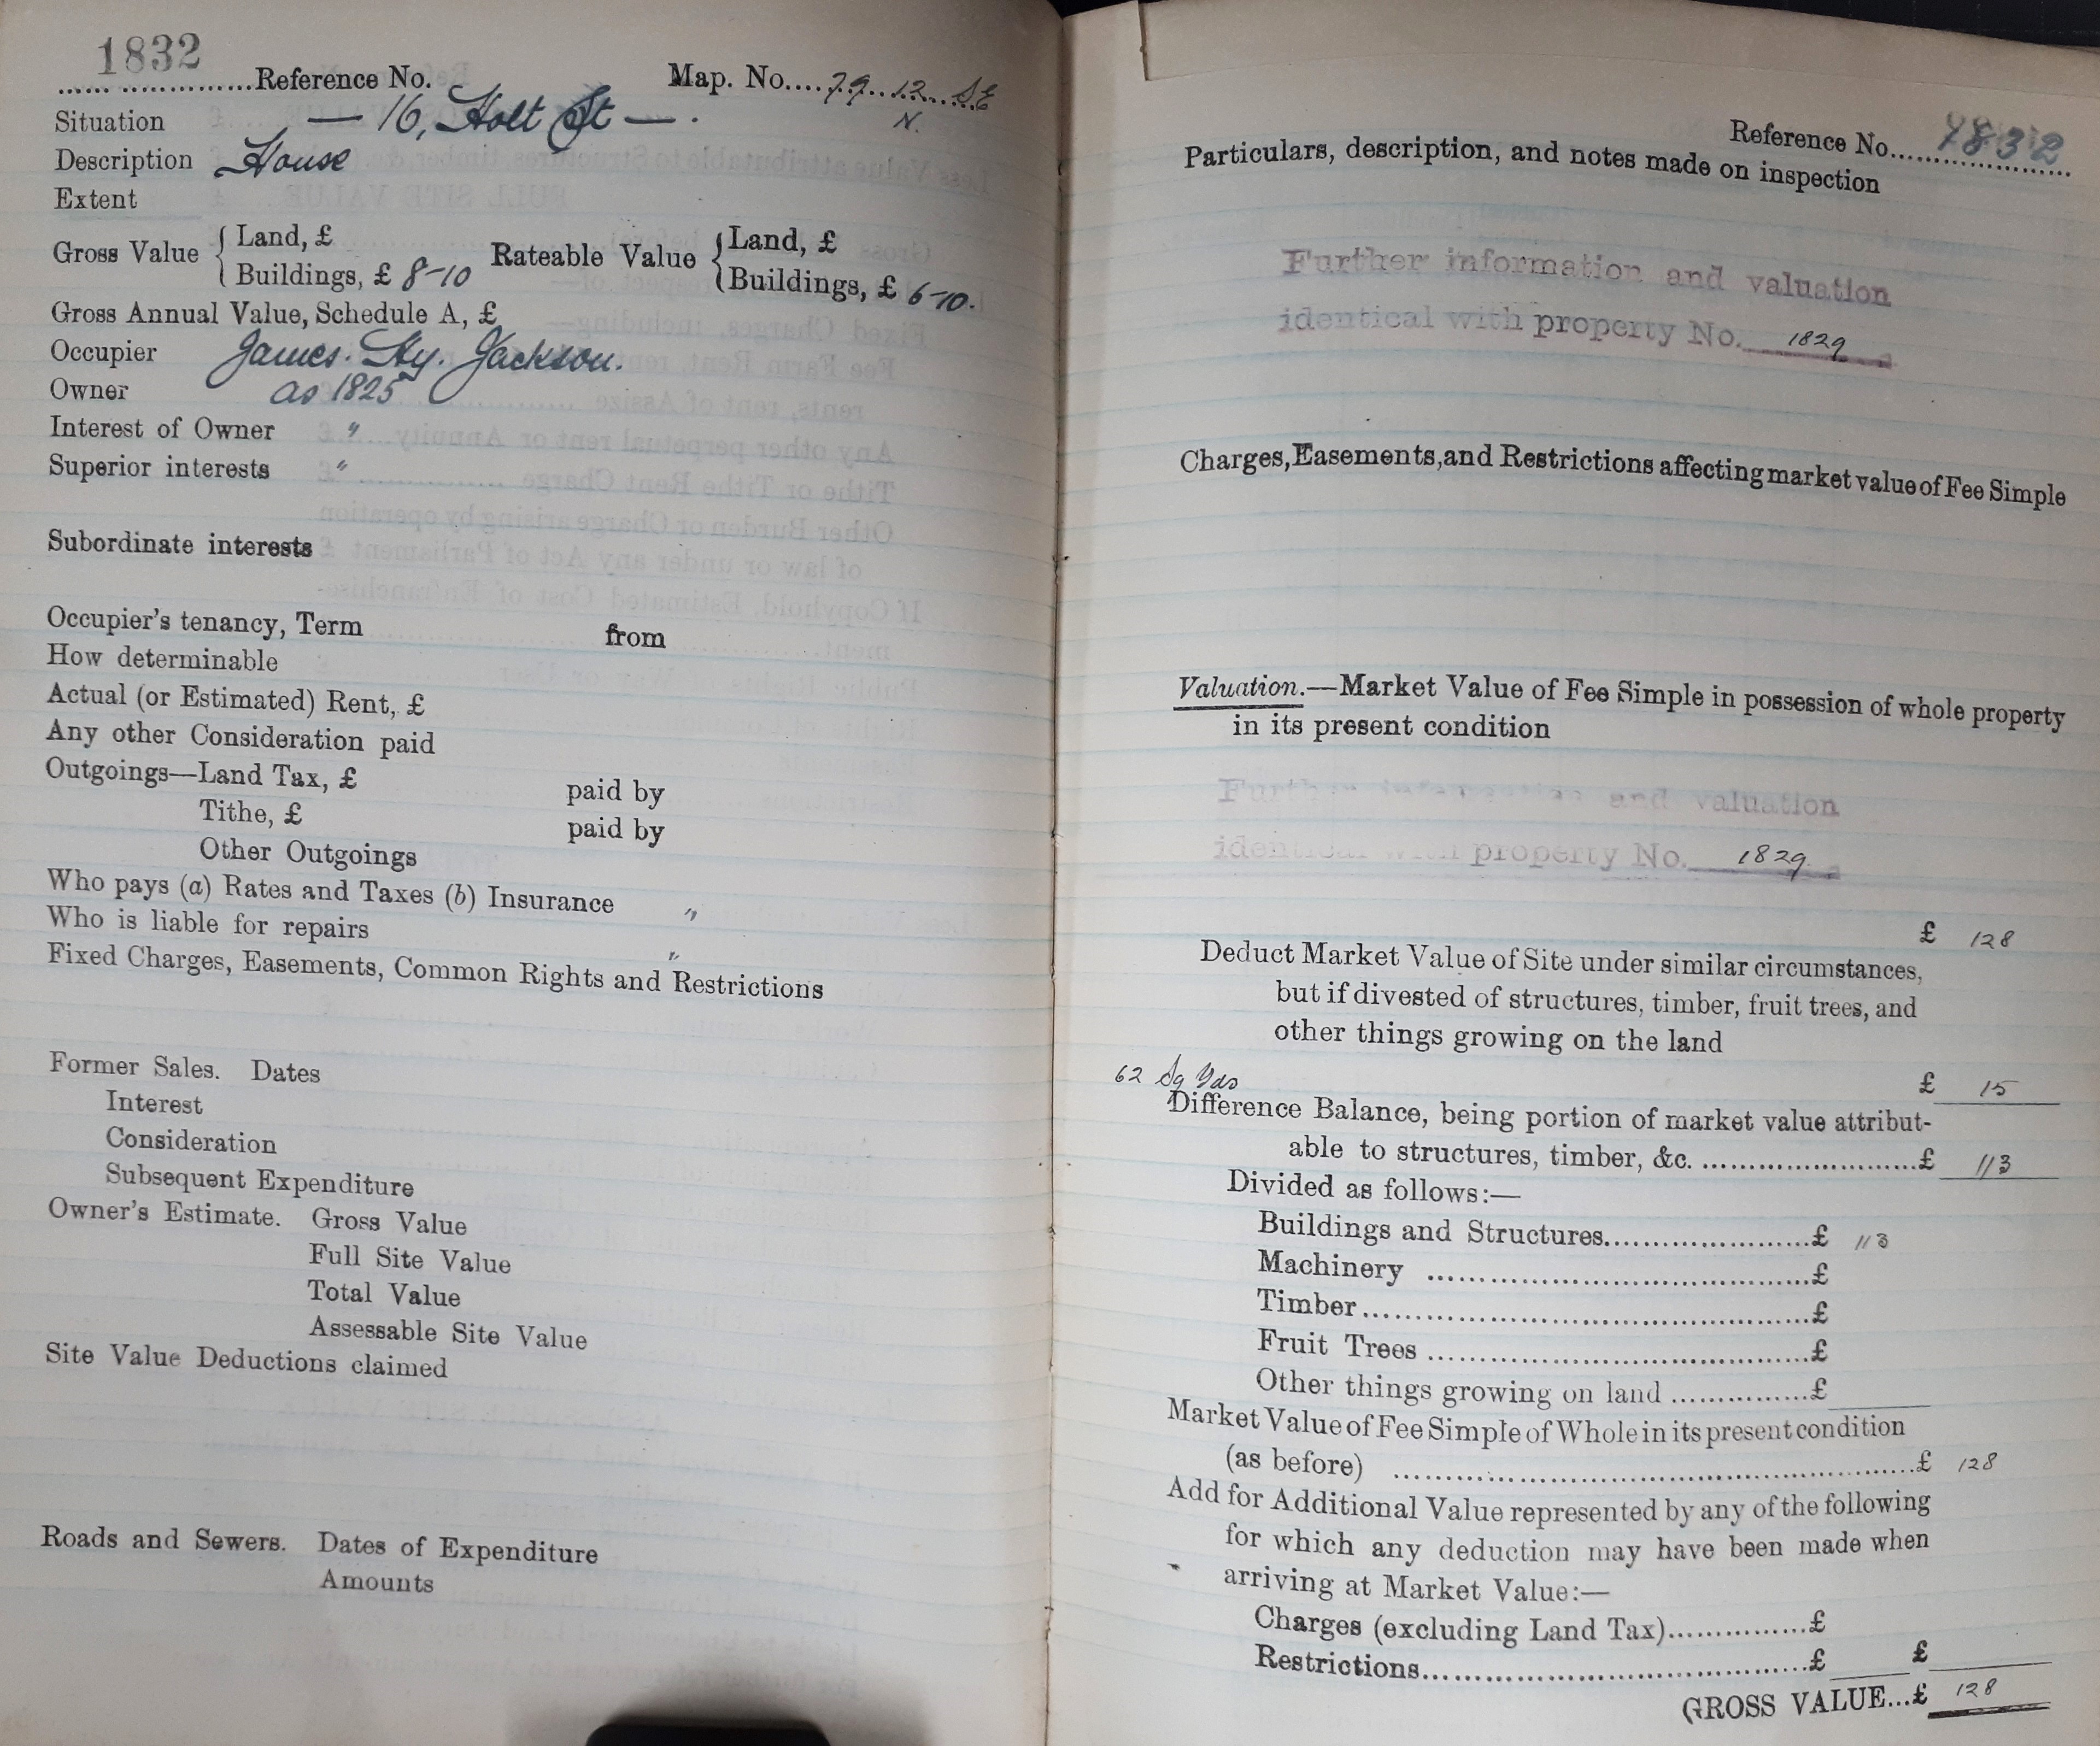 1832
Reference No. Map. No. 79. 12. SE
N.
Situation — 16, Holt St — .
Description House
Extent
Gross Value { Land, £ Rateable Value { Land, £
Buildings, £ 8-10 Buildings, £ 6-10.
Gross Annual Value, Schedule A, £
Occupier James. Hy. Jackson.
Owner as 1825
Interest of Owner "
Superior interests "
Subordinate interests
Occupier's tenancy, Term from
How determinable
Actual (or Estimated) Rent, £
Any other Consideration paid
Outgoings—Land Tax, £ paid by
Tithe, £ paid by
Other Outgoings
Who pays (a) Rates and Taxes (b) Insurance "
Who is liable for repairs "
Fixed Charges, Easements, Common Rights and Restrictions
Former Sales. Dates
Interest
Consideration
Subsequent Expenditure
Owner's Estimate. Gross Value
Full Site Value
Total Value
Assessable Site Value
Site Value Deductions claimed
Roads and Sewers. Dates of Expenditure
Amounts
Reference No. 1832
Particulars, description, and notes made on inspection
Further information and valuation
identical with property No. 1829
Charges, Easements, and Restrictions affecting market value of Fee Simple
Valuation.—Market Value of Fee Simple in possession of whole property
in its present condition
Further information and valuation
identical with property No. 1829.
£ 128
Deduct Market Value of Site under similar circumstances,
but if divested of structures, timber, fruit trees, and
other things growing on the land
62 Sq Yds £ 15
Difference Balance, being portion of market value attribut-
able to structures, timber, &c. £ 113
Divided as follows:—
Buildings and Structures £ 113
Machinery £
Timber £
Fruit Trees £
Other things growing on land £
Market Value of Fee Simple of Whole in its present condition
(as before) £ 128
Add for Additional Value represented by any of the following
for which any deduction may have been made when
arriving at Market Value:—
Charges (excluding Land Tax) £
Restrictions £ £
GROSS VALUE...£ 128